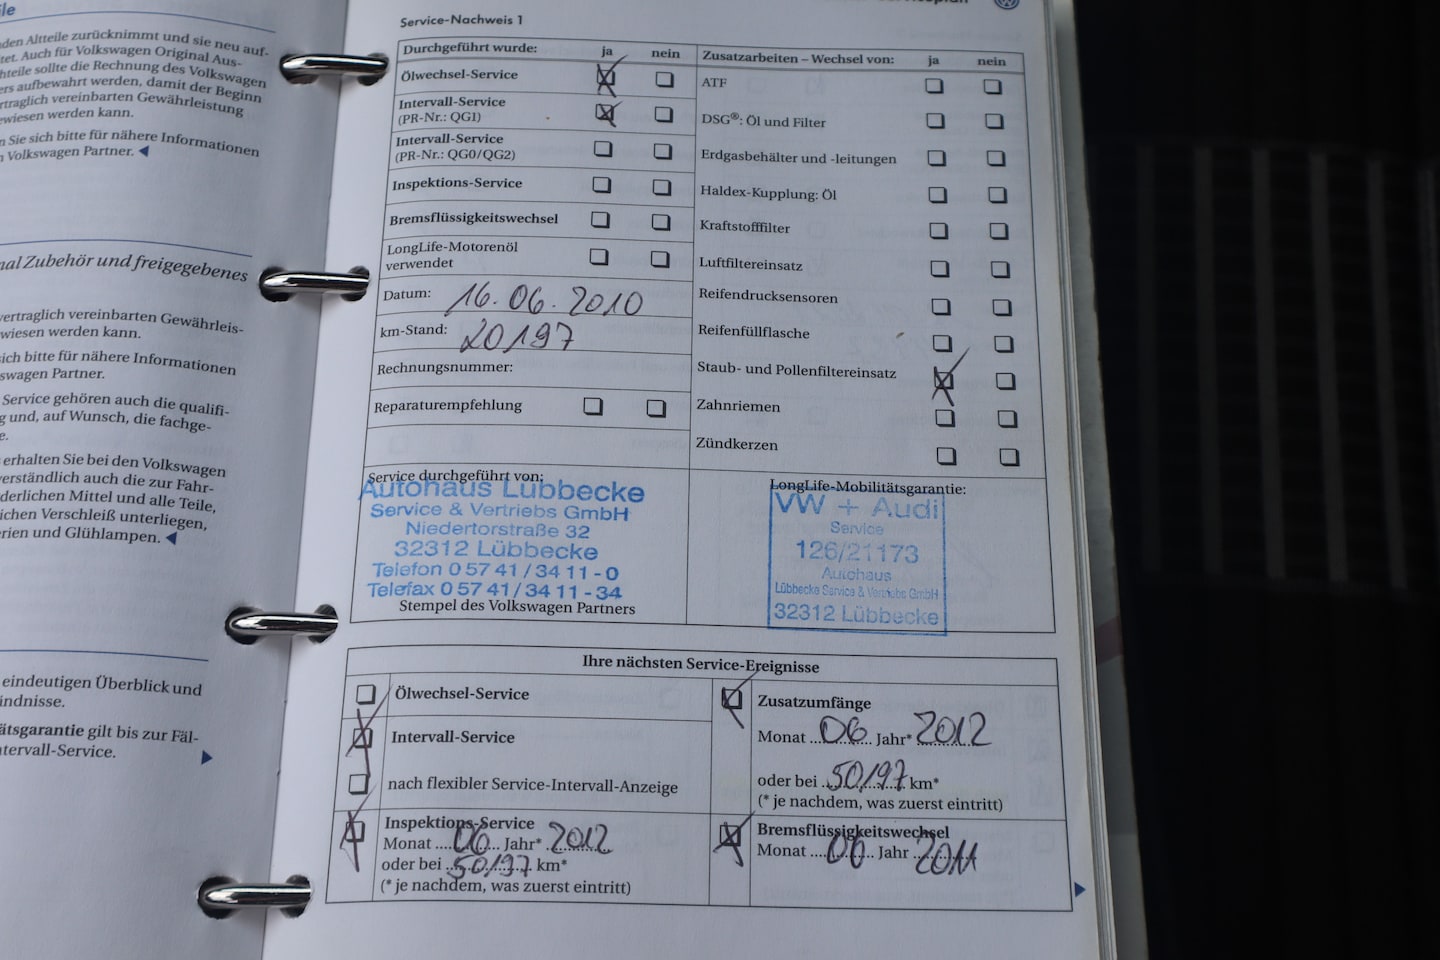 nden Altteile zurücknimmt und sie neu auf-
tet. Auch für Volkswagen Original Aus-
hteile sollte die Rechnung des Volkswagen
ers aufbewahrt werden, damit der Beginn
rtraglich vereinbarten Gewährleistung
ewiesen werden kann.
n Sie sich bitte für nähere Informationen
Volkswagen Partner.
nal Zubehör und freigegebenes
vertraglich vereinbarten Gewährleis-
wiesen werden kann.
sich bitte für nähere Informationen
swagen Partner.
Service gehören auch die qualifi-
g und, auf Wunsch, die fachge-
e.
erhalten Sie bei den Volkswagen
verständlich auch die zur Fahr-
derlichen Mittel und alle Teile,
ichen Verschleiß unterliegen,
rien und Glühlampen.
eindeutigen Überblick und
indnisse.
ätsgarantie gilt bis zur Fäl-
ntervall-Service.
Service-Nachweis 1
Durchgeführt wurde: ja nein
Ölwechsel-Service
Intervall-Service
(PR-Nr.: QG1)
Intervall-Service
(PR-Nr.: QG0/QG2)
Inspektions-Service
Bremsflüssigkeitswechsel
LongLife-Motorenöl
verwendet
Datum: 16.06.2010
km-Stand: 20197
Rechnungsnummer:
Reparaturempfehlung
Zusatzarbeiten – Wechsel von: ja nein
ATF
DSG®: Öl und Filter
Erdgasbehälter und -leitungen
Haldex-Kupplung: Öl
Kraftstofffilter
Luftfiltereinsatz
Reifendrucksensoren
Reifenfüllflasche
Staub- und Pollenfiltereinsatz
Zahnriemen
Zündkerzen
Service durchgeführt von:
Autohaus Lübbecke
Service & Vertriebs GmbH
Niedertorstraße 32
32312 Lübbecke
Telefon 0 57 41 / 34 11 - 0
Telefax 0 57 41 / 34 11 - 34
Stempel des Volkswagen Partners
LongLife-Mobilitätsgarantie:
VW + Audi
Service
126/21173
Autohaus
Lübbecke Service & Vertriebs GmbH
32312 Lübbecke
Ihre nächsten Service-Ereignisse
Ölwechsel-Service
Intervall-Service
nach flexibler Service-Intervall-Anzeige
Inspektions-Service
Monat ....06... Jahr* .2012
oder bei .50197 km*
(* je nachdem, was zuerst eintritt)
Zusatzumfänge
Monat ...06... Jahr* 2012
oder bei .50197 km*
(* je nachdem, was zuerst eintritt)
Bremsflüssigkeitswechsel
Monat ....06... Jahr 2011